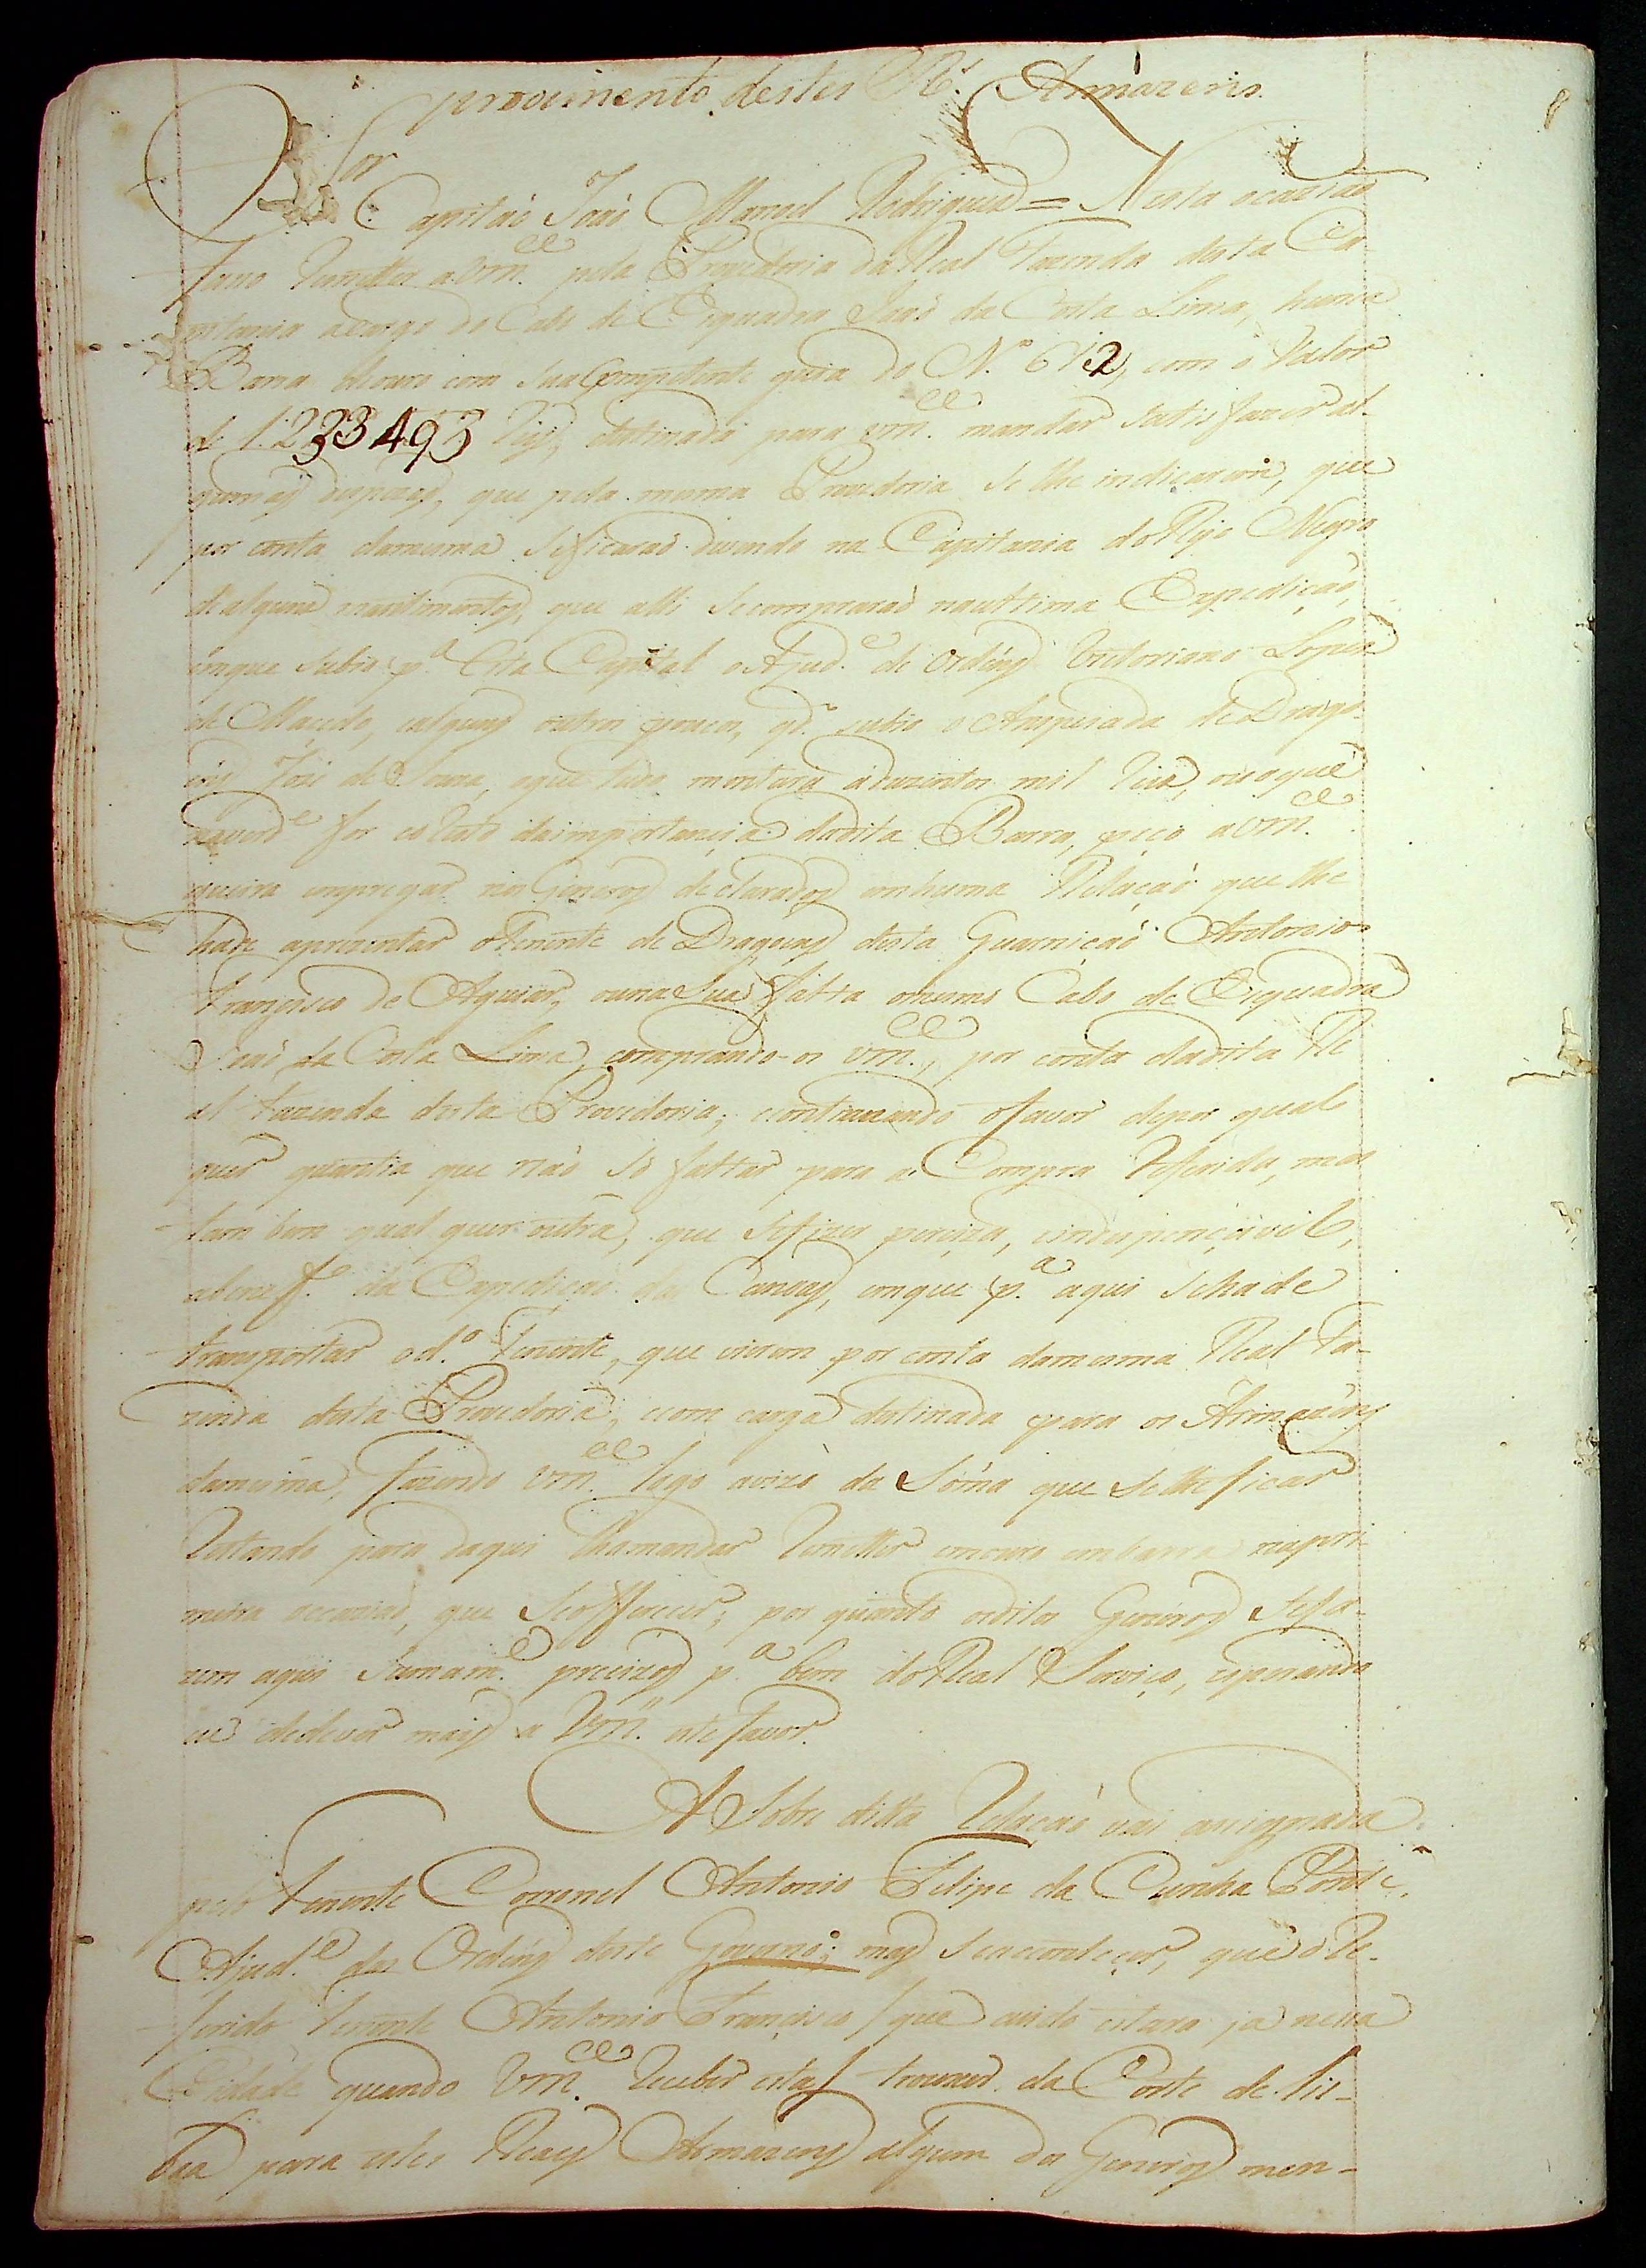 provimento destes R.s Armazens.
S.or Capitaõ Joaõ Manoel Rodrigues = Nesta ocaziaõ
faço remetter a Vm.ce pela Provedoria da Real Fazenda desta Ca-
pitania a cargo do Cabo de Esquadra Joaõ da Costa Lima, huma
Barra de ouro com sua competente guia do N.º 612, com o valor
de 1.233495 reis, destinada para Vm.ce mandar satisfazer al-
gumas despezas, que pela mesma Provedoria se lhe indicarem, que
por conta damesma seficaraõ devendo na Capitania do Rio Negro
de alguns mantimentos, que alli secompraraõ naultima Expediçaõ,
emque subio p.a Esta Capital o Ajud.e de ordens Victoriano Lopes
de Macedo, ealguns outros poucos, qd.o subio o Anspesada de Drago-
ens José de Souza, oque tudo montará a duzentos mil reis, ou oque
naverd.e for eo resto daimportancia dadita Barra, peço a Vm.ce
queira empregar nos Generos declarados emhuma Relaçaõ que lhe
hade aprezentar oTenente de Dragoens desta Guarniçaõ Antonio
Francisco de Aguiar, ouna Sua falta omesmo Cabo de Esquadra
Joaõ da Costa Lima, comprando-os Vm.ce, por conta dadita Re-
al Fazenda desta Provedoria; econtinuando ofavor depor qual-
quer quantia que naõ só faltar para a Compra Referida, mas
tam bem qual quer outra, que sefizer preciza, eindispençavel,
abenef.o da Expediçaõ das Canoas, emque p.a aqui sehade
transportar od.o Tenente, que virem por conta damesma Real Fa-
zenda desta Provedoria, ecom carga destinada para os Armazens
damesma, fazendo Vm.ce logo avizo da Sôma que selhe ficar
Restando para daqui lhamandar Remetter emouro embarra naprî-
meira occaziaõ, que seofferecer; por quanto osditos Generos sefa-
zem aqui sumam.e precizos p.a bem doReal Serviço, esperando
eu dedever mais a Vm.ce este favor.
A Sobre ditta Relaçaõ vai assignada
pelo Tenente Coronel Antonio Felipe da Cunha Ponte,
Ajud.e das Ordens deste Governo; mas seacontecer, que o Re-
ferido Tenente Antonio Francisco / que cuido estara ja nessa
Cidade quando Vm.ce Receber esta / trouxer da Corte de Lis-
boa para estes Reaes Armazens algum dos Generos men-